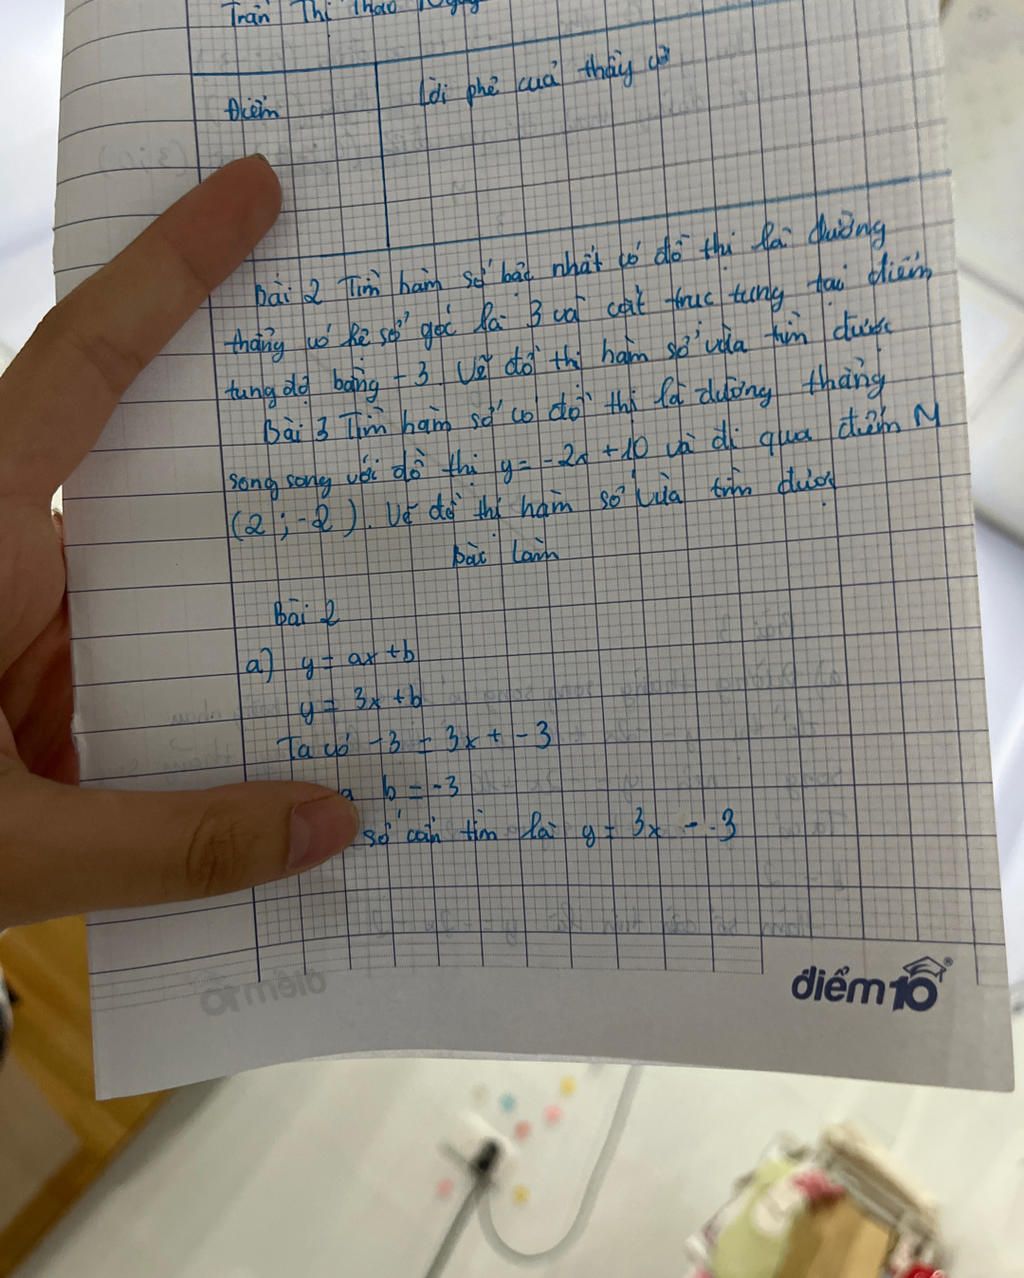 Trần Thị Thảo
Điểm
Lời phê của thầy cô
Bài 2 Tìm hàm số bậc nhất có đồ thị là đường
thẳng có hệ số góc là 3 và cắt trục tung tại điểm
tung độ bằng -3. Vẽ đồ thị hàm số vừa tìm được
Bài 3 Tìm hàm số có đồ thị là đường thẳng
song song với đồ thị y = -2x + 10 và đi qua điểm M
(2 ; -2). Vẽ đồ thị hàm số vừa tìm được
Bài làm
Bài 2
a) y = ax + b
y = 3x + b
Ta có -3 = 3x + -3
b = -3
số cần tìm là y = 3x - 3
điểm10